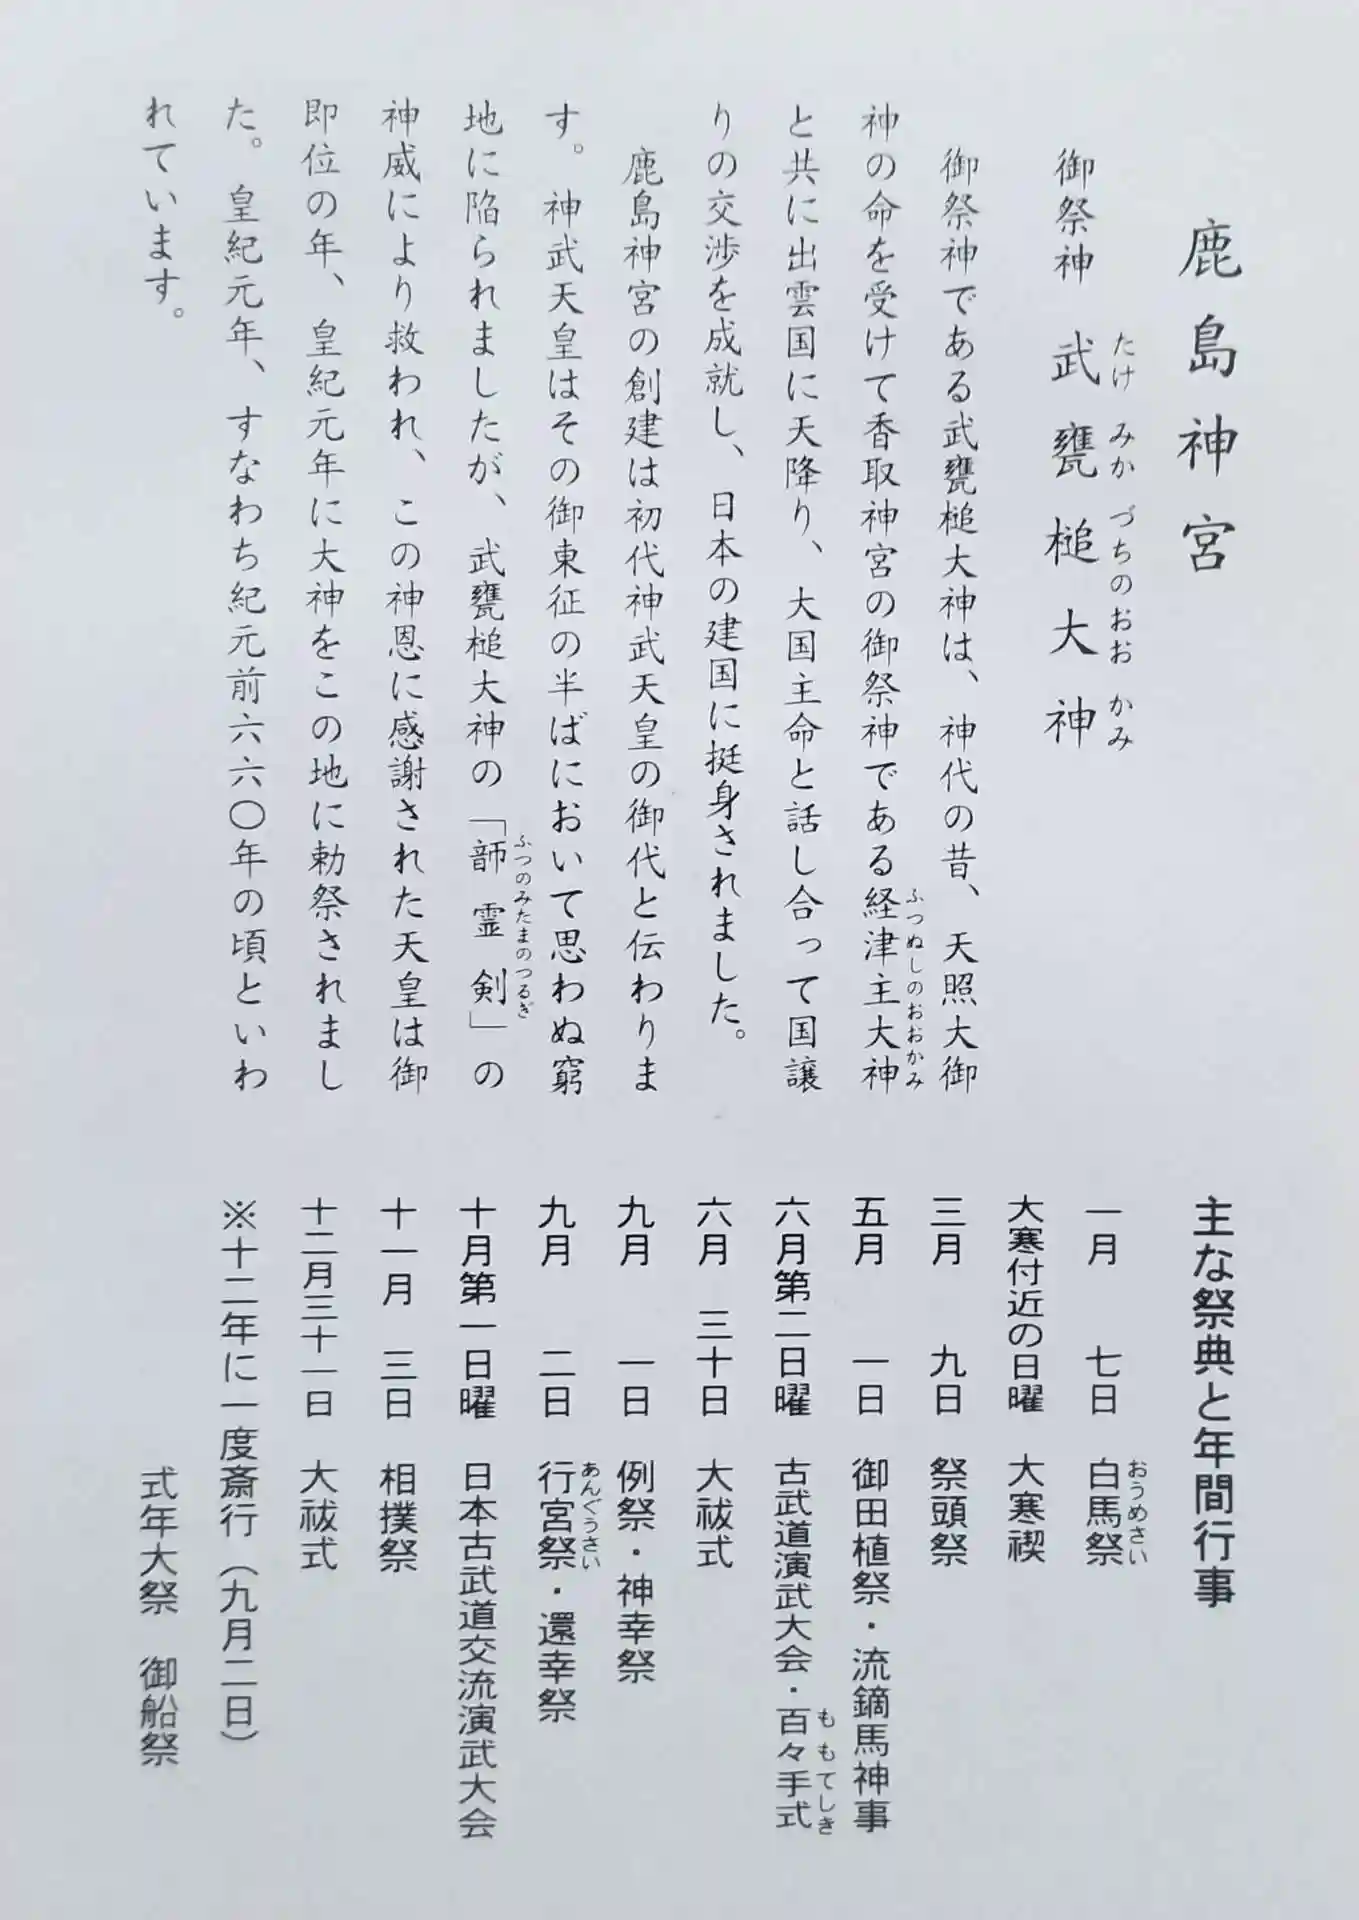 鹿島神宮
御祭神　武甕槌大神
たけ みか づちのおお かみ
御祭神である武甕槌大神は、神代の昔、天照大御
神の命を受けて香取神宮の御祭神である経津主大神
ふつぬしのおおかみ
と共に出雲国に天降り、大国主命と話し合って国譲
りの交渉を成就し、日本の建国に挺身されました。
鹿島神宮の創建は初代神武天皇の御代と伝わりま
す。神武天皇はその御東征の半ばにおいて思わぬ窮
地に陥られましたが、武甕槌大神の「韴霊剣」の
ふつのみたまのつるぎ
神威により救われ、この神恩に感謝された天皇は御
即位の年、皇紀元年に大神をこの地に勅祭されまし
た。皇紀元年、すなわち紀元前六六〇年の頃といわ
れています。
主な祭典と年間行事
一月　七日　白馬祭
おうめさい
大寒付近の日曜　大寒禊
三月　九日　祭頭祭
五月　一日　御田植祭・流鏑馬神事
六月第二日曜　古武道演武大会・百々手式
ももてしき
六月　三十日　大祓式
九月　一日　例祭・神幸祭
九月　二日　行宮祭・還幸祭
あんぐうさい
十月第一日曜　日本古武道交流演武大会
十一月　三日　相撲祭
十二月三十一日　大祓式
※十二年に一度斎行（九月二日）
式年大祭　御船祭